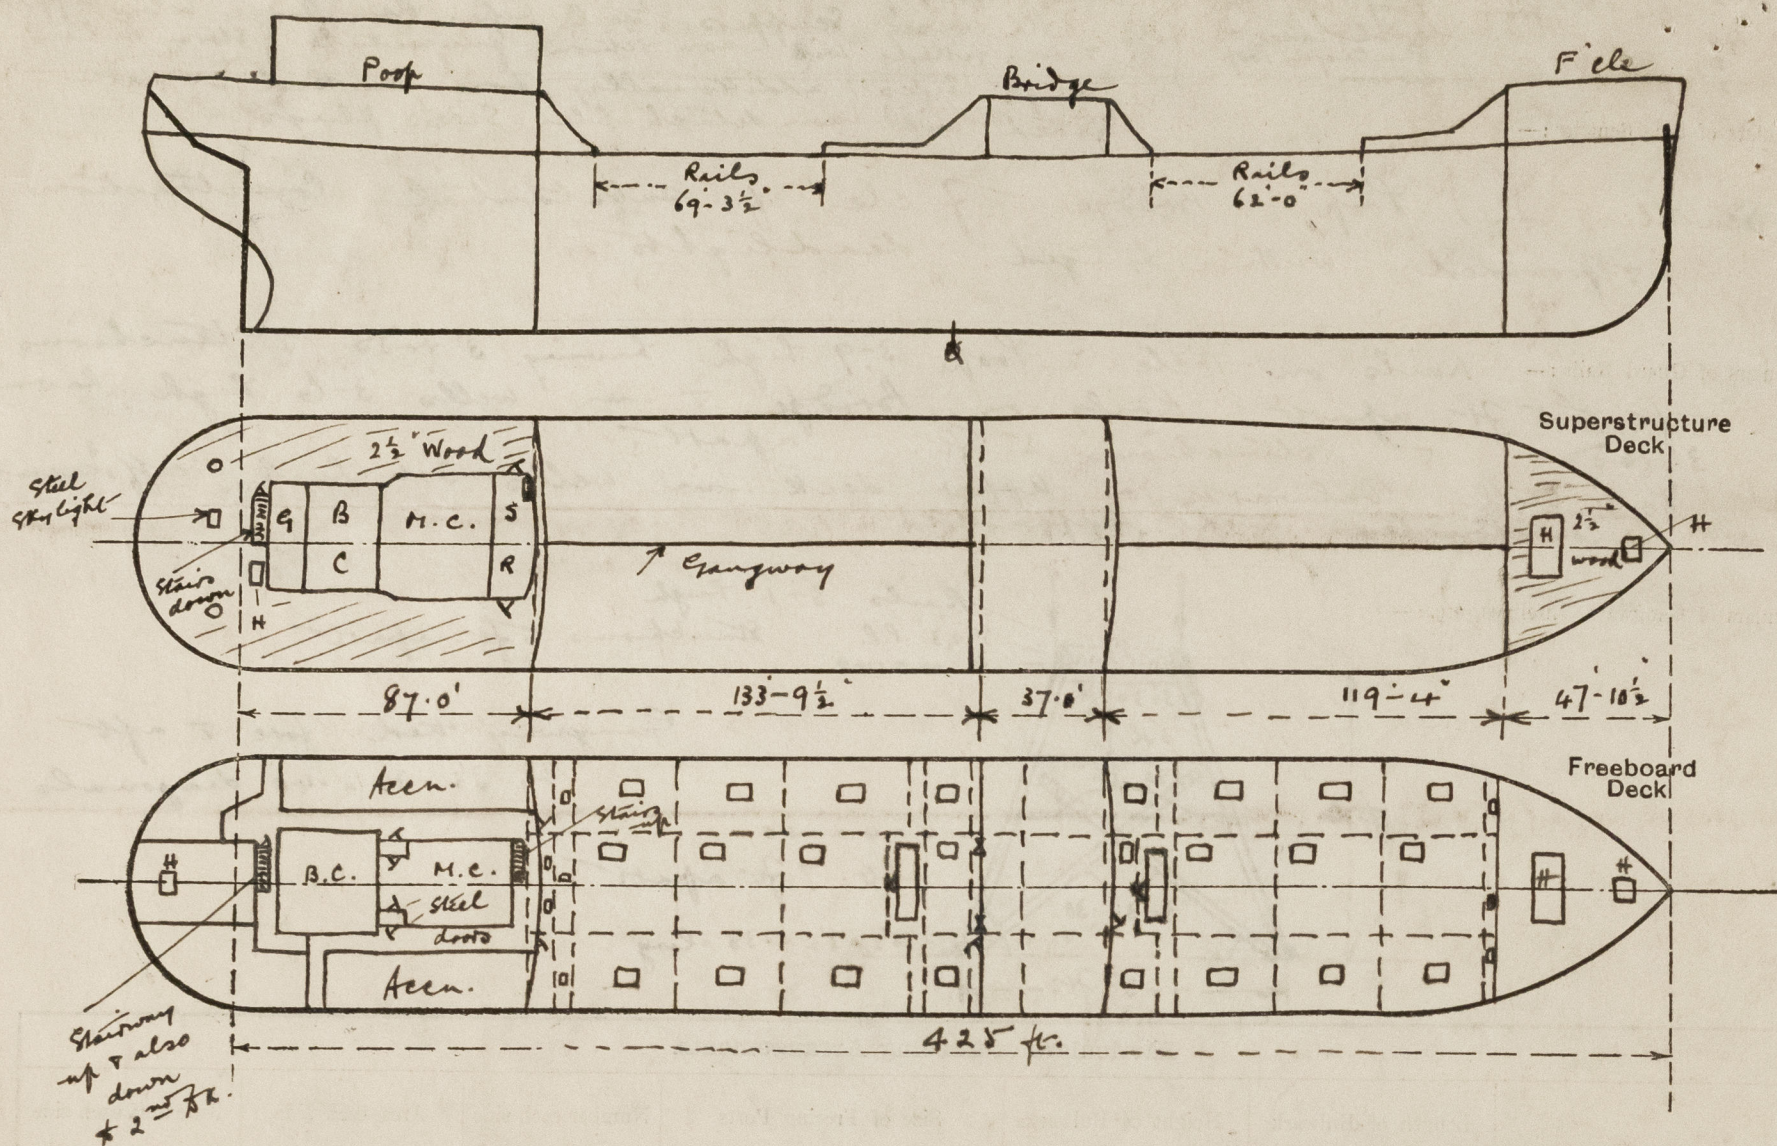 Poop
Bridge
F'cle
Rails
69'-3½"
Rails
62'-0"
Superstructure
Deck
2½" Wood
Steel
Skylight
G
B
C
M.C.
S
R
Stairs
down
H
Gangway
H
2½"
wood
H
87.0'
133'-9½"
37.0'
119'-4"
47'-10½"
Freeboard
Deck
Accn.
Stairs
up
H
B.C.
M.C.
Steel
doors
H
H
Accn.
Stairway
up & also
down
to 2nd Dk.
425 ft.